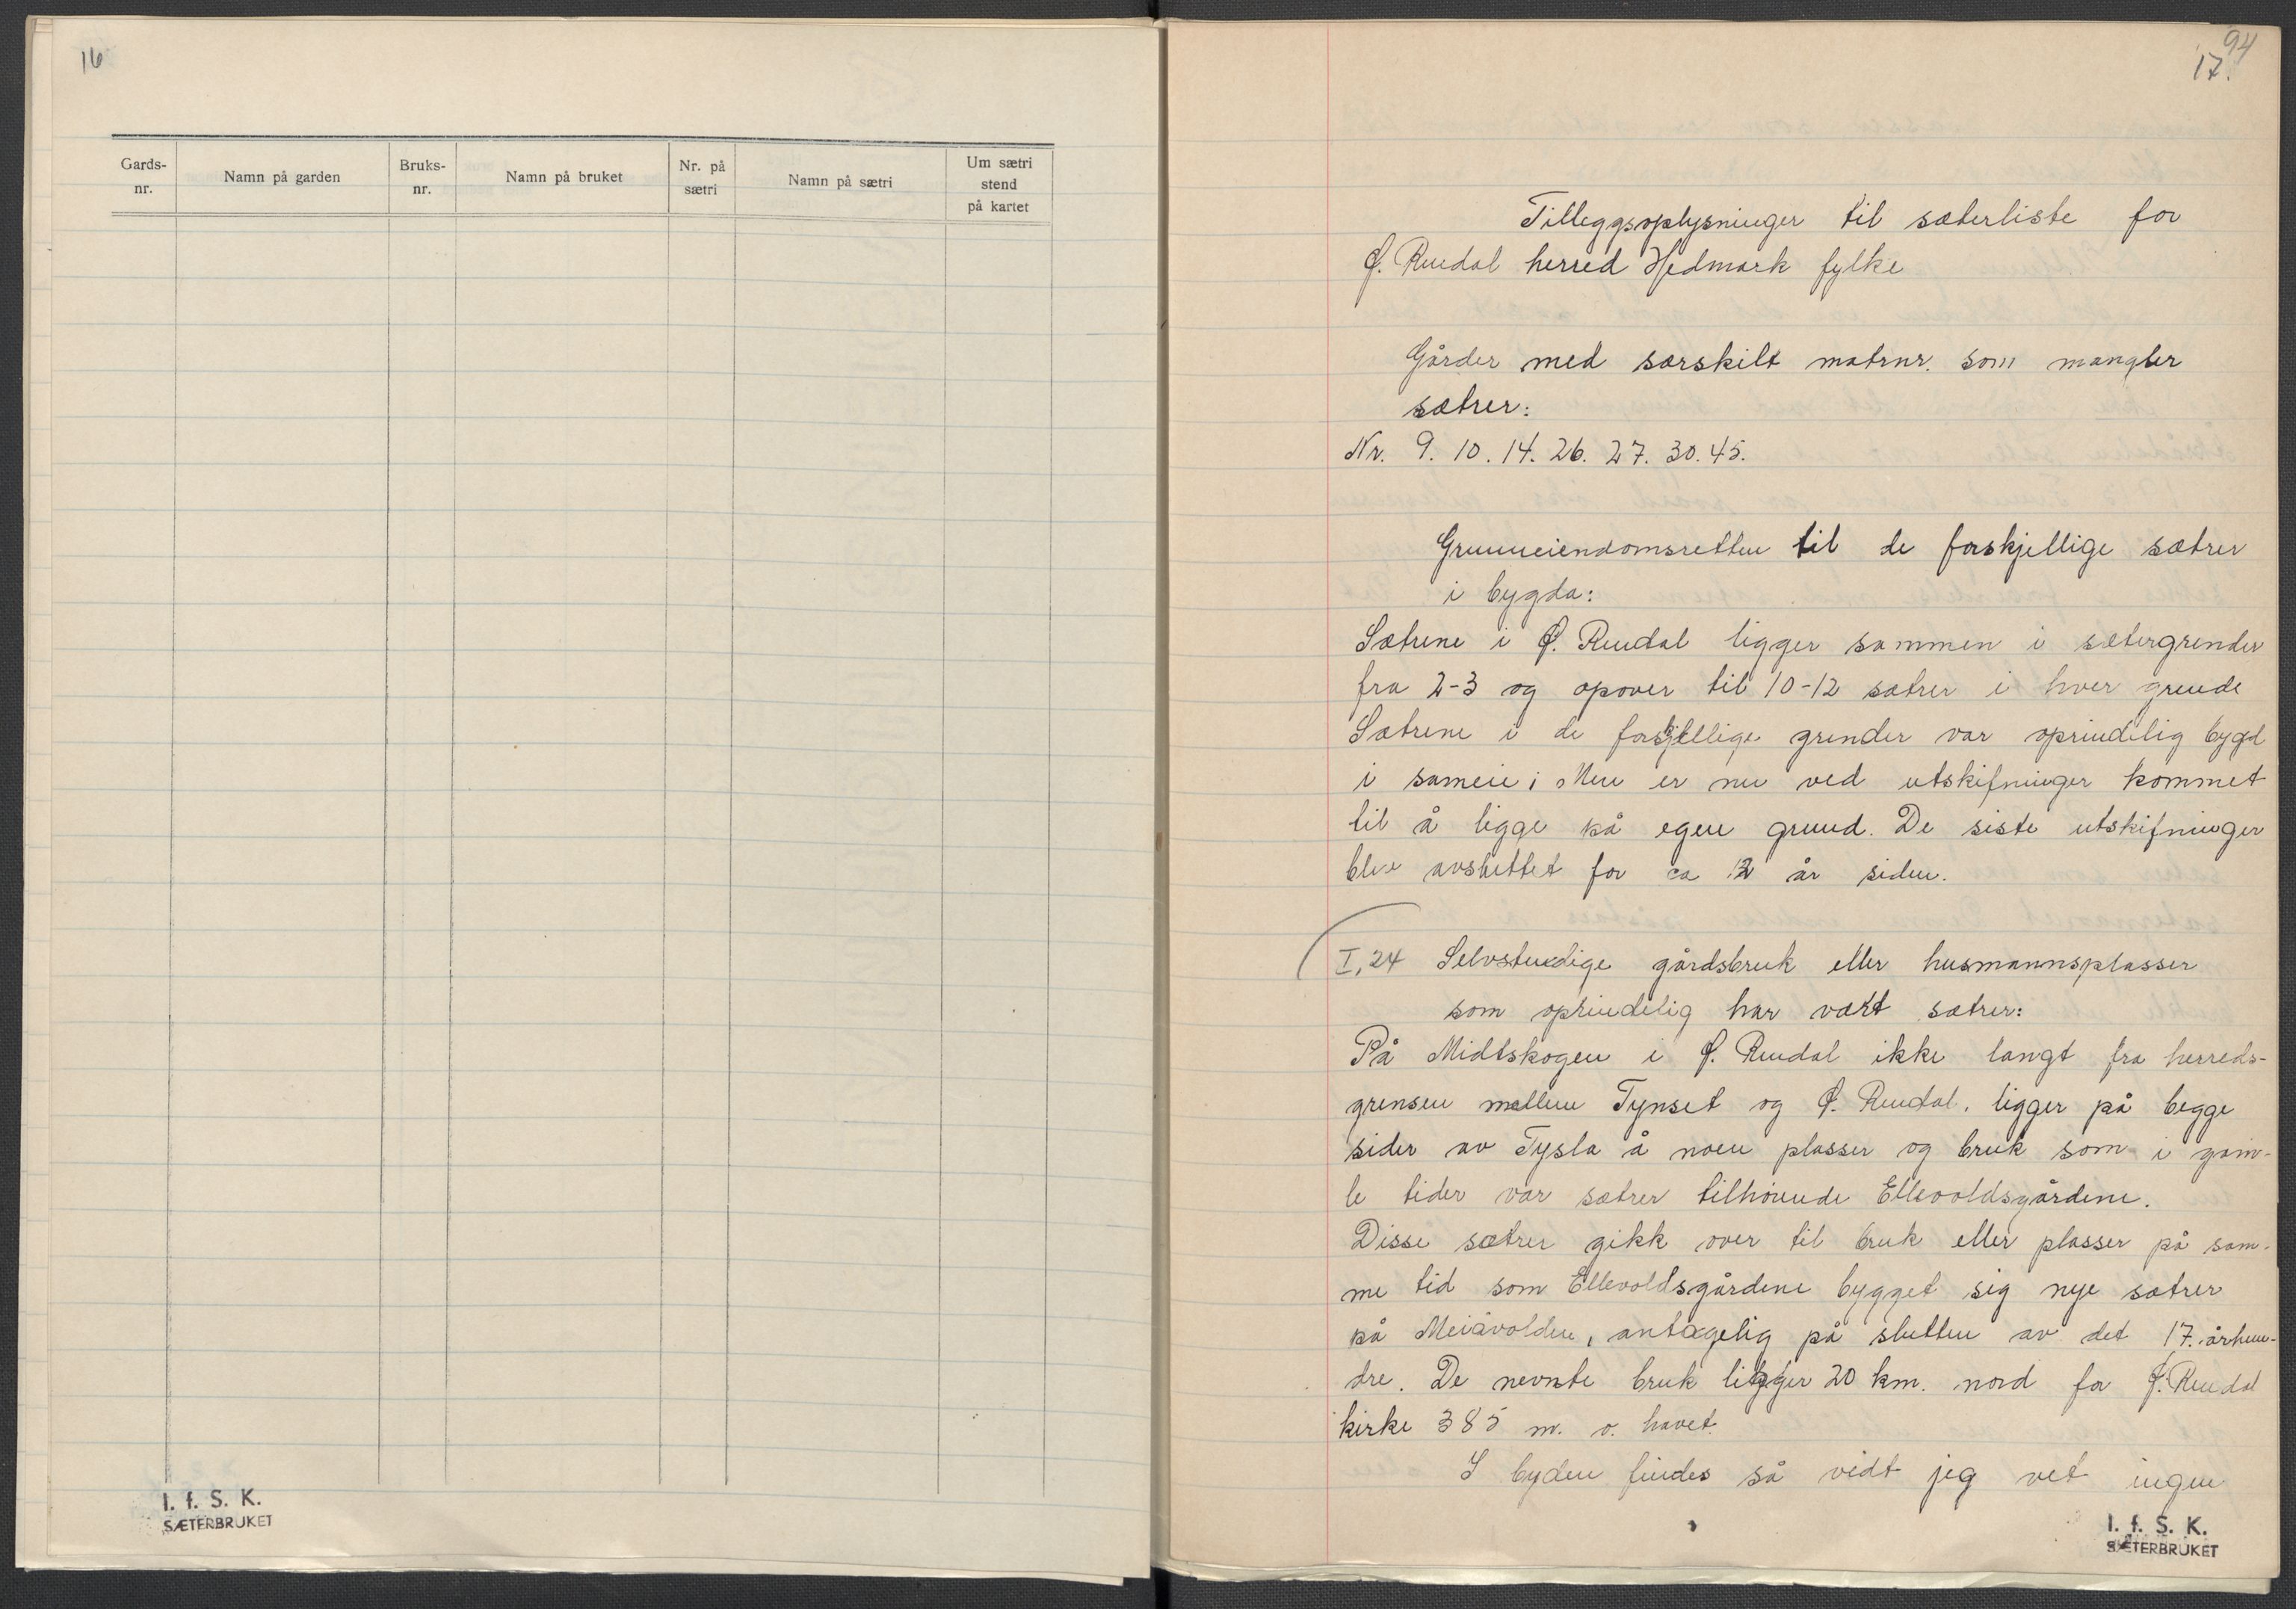 16
Gards-
nr.
Namn på garden
Bruks-
nr.
Namn på bruket
Nr. på
sætri
Namn på sætri
Um sætri
stend
på kartet
I. f. S. K.
SÆTERBRUKET
94
17.
Tilleggsoplysninger til sæterliste for
Ø. Rendal herred Hedmark fylke
Gårder med særskilt matrnr. som mangler
sætrer:
Nr. 9. 10. 14. 26. 27. 30. 45.
Grunneiendomsretten til de forskjellige sætrer
i bygda:
Sætrene i Ø. Rendal ligger sammen i sætergrender
fra 2-3 og opover til 10-12 sætrer i hver grende
Sætrene i de forskjellige grender var oprindelig bygd
i sameie; Men er nu ved utskifninger kommet
til å ligge på egen grund. De siste utskifninger
blev avsluttet for ca 12 år siden.
I, 24 Selvstendige gårdsbruk eller husmannsplasser
som oprindelig har vært sætrer:
På Midtskogen i Ø. Rendal ikke langt fra herreds-
grensen mellem Tynset og Ø. Rendal, ligger på begge
sider av Tysla å noen plasser og bruk som i gam-
le tider var sætrer tilhørende Ellevoldsgårdene.
Disse sætrer gikk over til bruk eller plasser på sam-
me tid som Ellevoldsgårdene bygget sig nye sætrer
på Meiåvolden, antagelig på slutten av det 17. århun-
dre. De nevnte bruk ligger 20 km. nord for Ø. Rendal
kirke 385 m. o. havet.
I byden findes så vidt jeg vet ingen
I. f. S. K.
SÆTERBRUKET